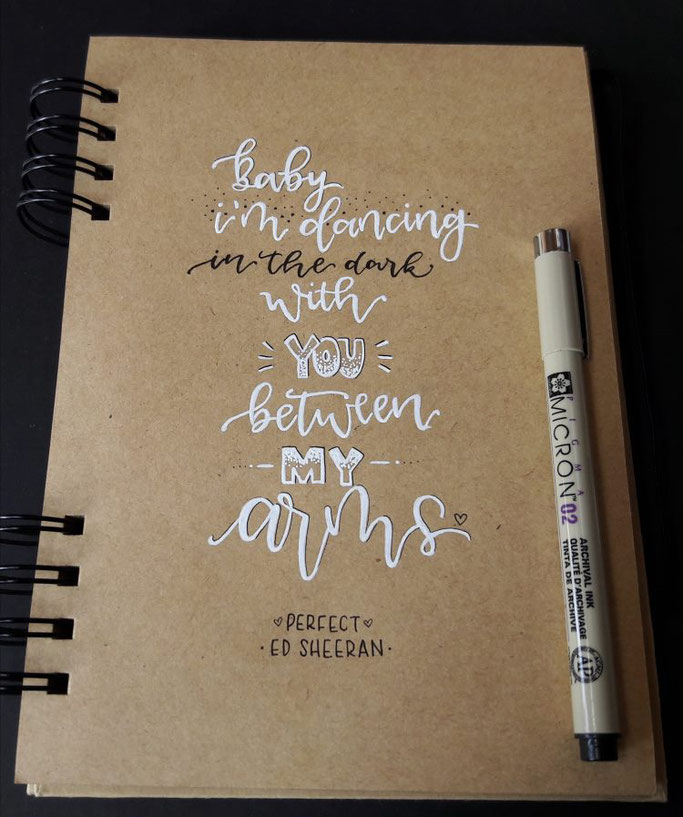 baby
i'm dancing
in the dark
with
YOU
between
MY
arms
PERFECT
ED SHEERAN
PIGMA
MICRON™ 02
ARCHIVAL INK
QUALITÉ D'ARCHIVAGE
TINTA DE ARCHIVE
AP